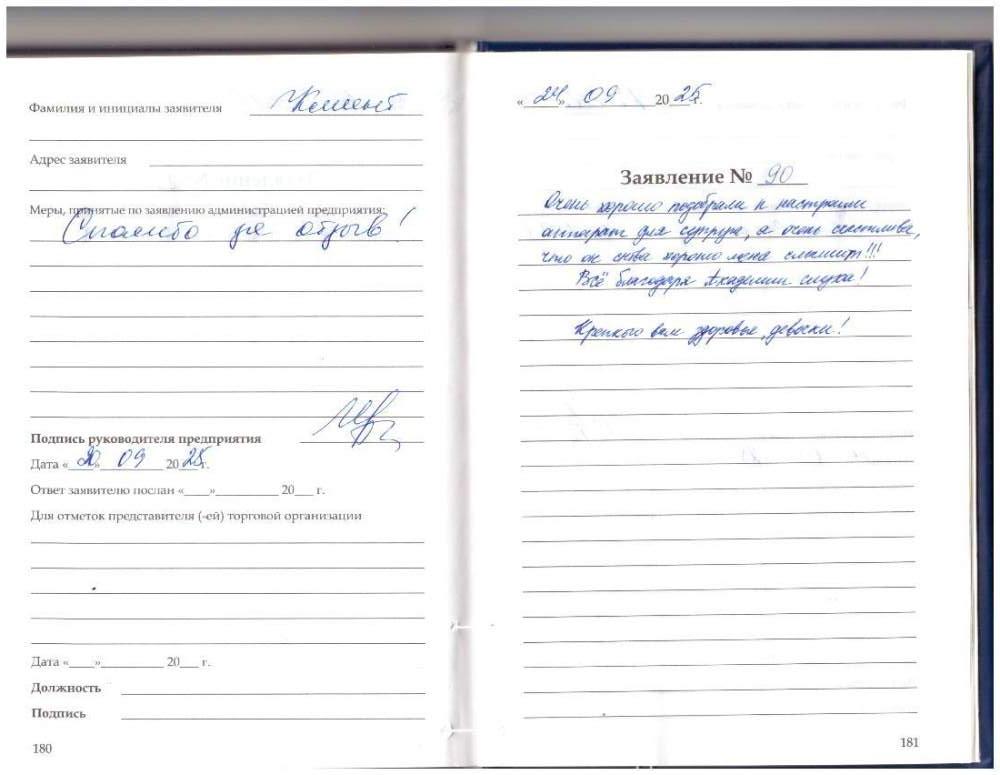 Фамилия и инициалы заявителя Клиент
Адрес заявителя
Меры, принятые по заявлению администрацией предприятия:
Спасибо за отзыв!
Подпись руководителя предприятия
Дата «20» 09 2025г.
Ответ заявителю послан «____»__________ 20___ г.
Для отметок представителя (-ей) торговой организации
Дата «____»__________ 20___ г.
Должность
Подпись
180
«24» 09 2025г.
Заявление № 90
Очень хорошо подобрали и настроили
аппарат для супруга, я очень счастлива,
что он снова хорошо меня слышит!!!
Всё благодаря Академии слуха!
Крепкого вам здоровья, девочки!
181